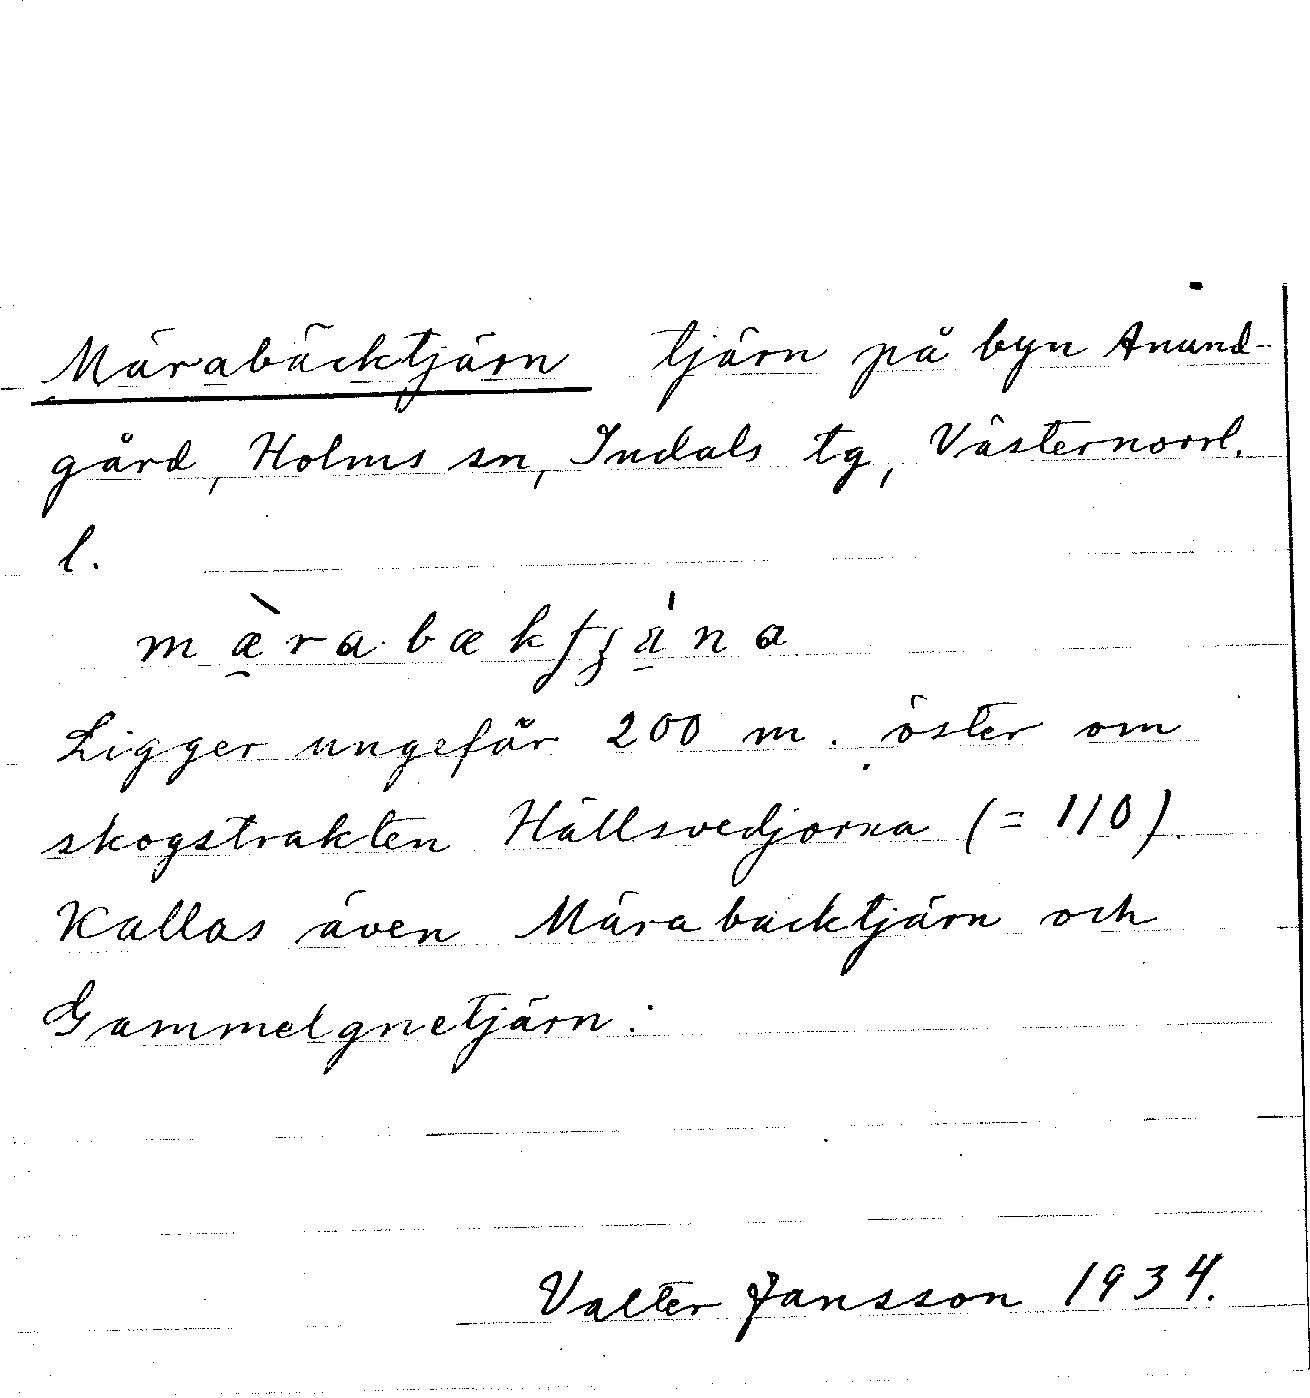 Märabäcktjärn tjärn på byn Anund-
gård, Holms sn, Indals tg, Västernorrl.
l.
Ligger ungefär 200 m. öster om
skogstrakten Hällsvedjorna (= 110).
Kallas även Märabäcktjärn och
Gammelgnetjärn.
Valter Jansson 1934.